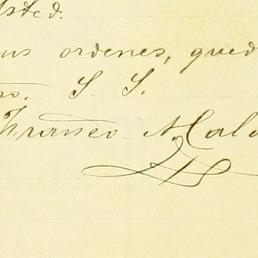 Usted.
sus ordenes, qued
S. S.
Franco. Malo